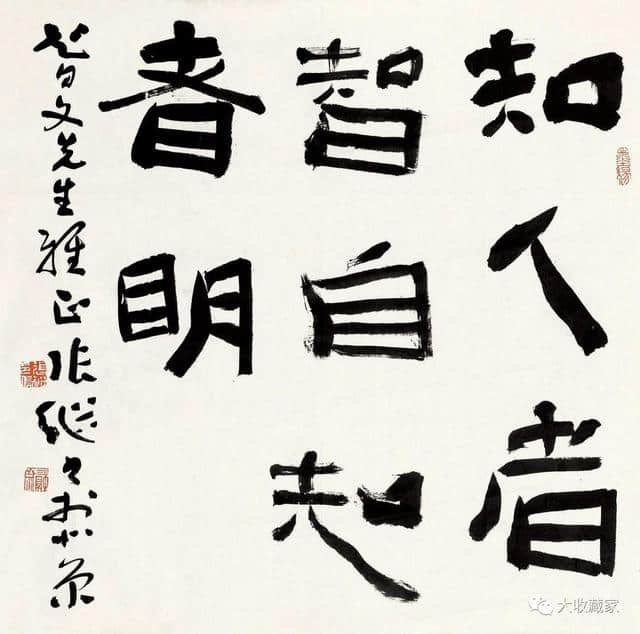 知人者
智自知
者明
智文先生雅正张继
大收藏家